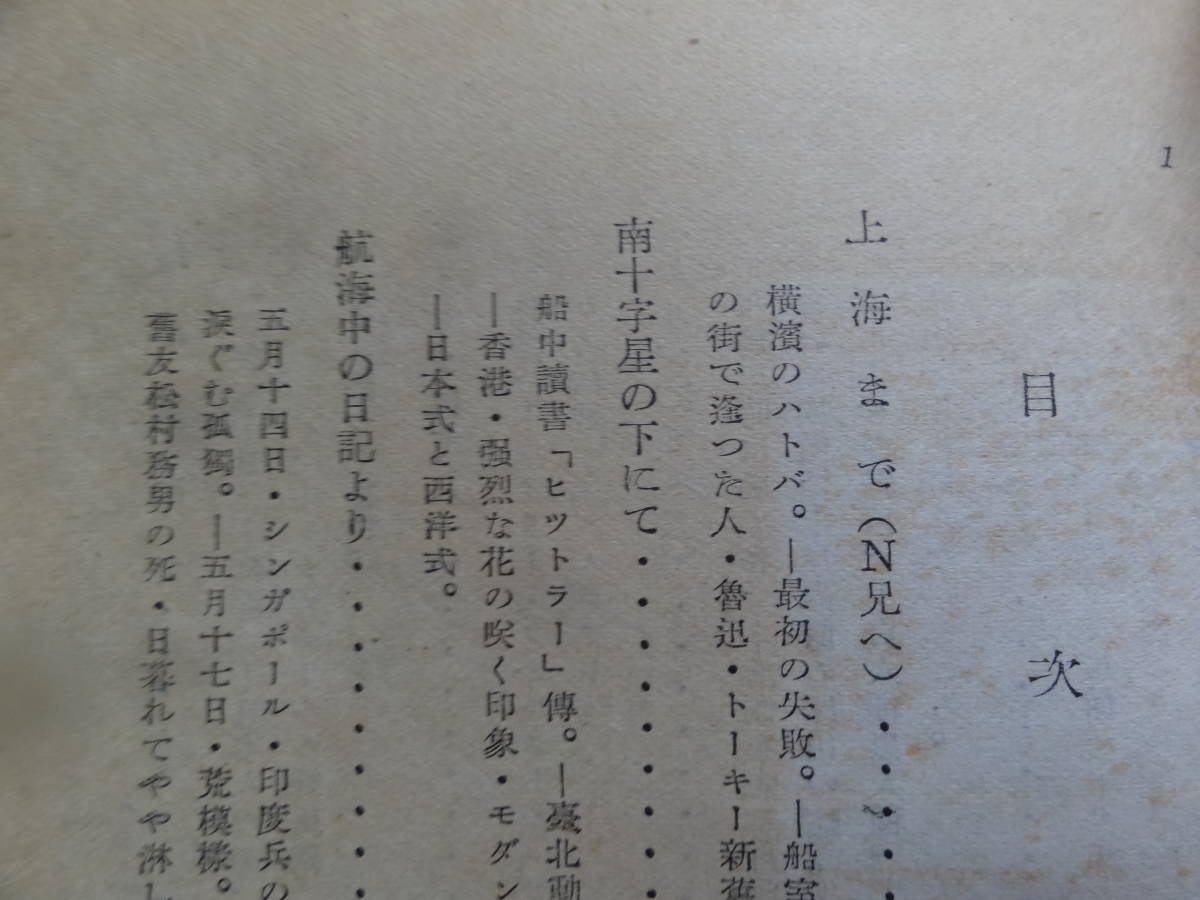 1
目次
上海まで（N兄へ）・・・・
横濱のハトバ。—最初の失敗。—船室
の街で逢つた人・魯迅・トーキー新舊
南十字星の下にて・・・・・・・・・
船中讀書「ヒツトラー」傳。—臺北動
—香港・强烈な花の咲く印象・モダン
—日本式と西洋式。
航海中の日記より・・・・・・・・・
五月十四日・シンガポール・印度兵の
淚ぐむ孤獨。—五月十七日・荒模樣。
舊友松村務男の死・日暮れてやや淋し